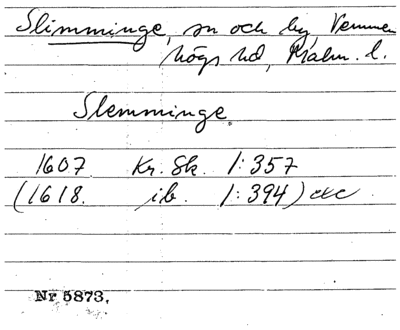 Slimminge, sn och by, Vemmen
högs hd, Malm. l.
Slemminge.
1607. Kr. Sk. 1:357
(1618. ib. 1:394) etc
Nr 5873.